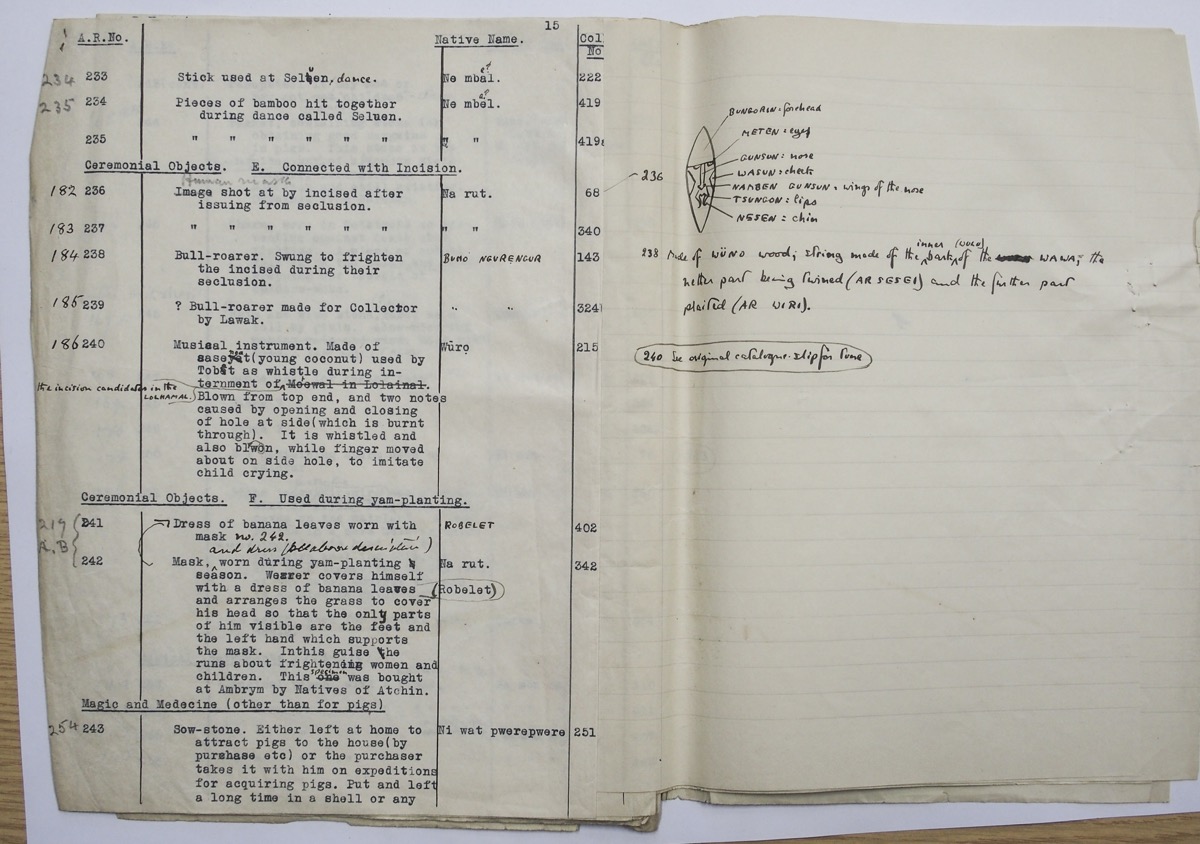 15
A.R.No. Native Name. Col No
234 233 Stick used at Seluen, dance. Ne mbal. 222
235 234 Pieces of bamboo hit together Ne mbel. 419
during dance called Seluen.
235 " " " " " " " " 419
Ceremonial Objects. E. Connected with Incision.
Human mask
182 236 Image shot at by incised after Na rut. 68
issuing from seclusion.
183 237 " " " " " " " " 340
184 238 Bull-roarer. Swung to frighten BUMÖ NEURENGUR 143
the incised during their
seclusion.
185 239 ? Bull-roarer made for Collector " " 324
by Lawak.
186 240 Musical instrument. Made of Wūro 215
(young coconut) used by
as whistle during in-
ternment of Moewal in Lolainal.
the incision candidates in the
LOLHAMAL.
Blown from top end, and two notes
caused by opening and closing
of hole at side(which is burnt
through). It is whistled and
also blown, while finger moved
about on side hole, to imitate
child crying.
Ceremonial Objects. F. Used during yam-planting.
219 A.B
241 Dress of banana leaves worn with ROBELET 402
mask no. 242.
and dress (see above description)
242 Mask, worn during yam-planting Na rut. 342
season. Wearer covers himself
with a dress of banana leaves (Robelet)
and arranges the grass to cover
his head so that the only parts
of him visible are the feet and
the left hand which supports
the mask. Inthis guise he
runs about frightening women and
children. This specimen was bought
at Ambrym by Natives of Atchin.
Magic and Medecine (other than for pigs)
254 243 Sow-stone. Either left at home to Ni wat pwerepwere 251
attract pigs to the house(by
purshase etc) or the purchaser
takes it with him on expeditions
for acquiring pigs. Put and left
a long time in a shell or any
236
BUNGORIN = forehead
METEN = eyes
GUNSUN = nose
WASUN = cheeks
NAMBEN GUNSUN = wings of the nose
TSUNGON = lips
NESEN = chin
238 Made of WÜNO wood; string made of the inner bark (WULU) of the WAWA; the
nether part being twined (AR SESEI) and the further part
plaited (AR WIRI).
240 See original catalogue-slip for tune